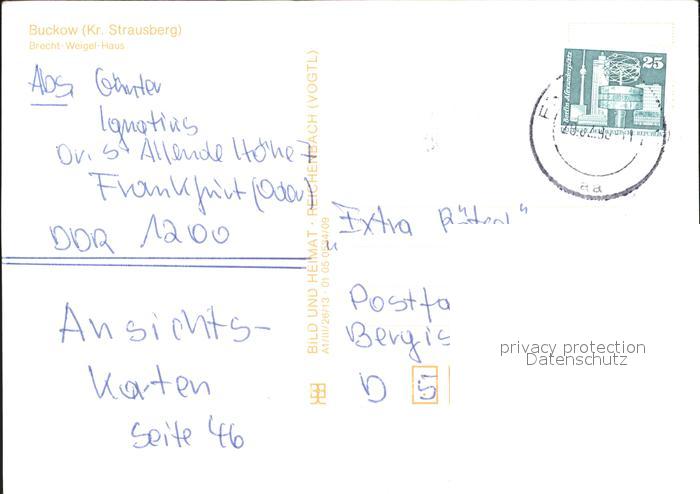 Buckow (Kr. Strausberg)
Brecht-Weigel-Haus
Abs. Günter
Ignatius
Dr. S. Allende Höhe 7
Frankfurt (Oder)
DDR 1200
Ansichts-
Karten
Seite 46
BILD UND HEIMAT · REICHENBACH (VOGTL)
A1/III/26/13 · 01 05 0534/09
25
Berlin, Alexanderplatz
aa
"Extra Rätsel"
Postfa
Bergis
D 5
privacy protection
Datenschutz